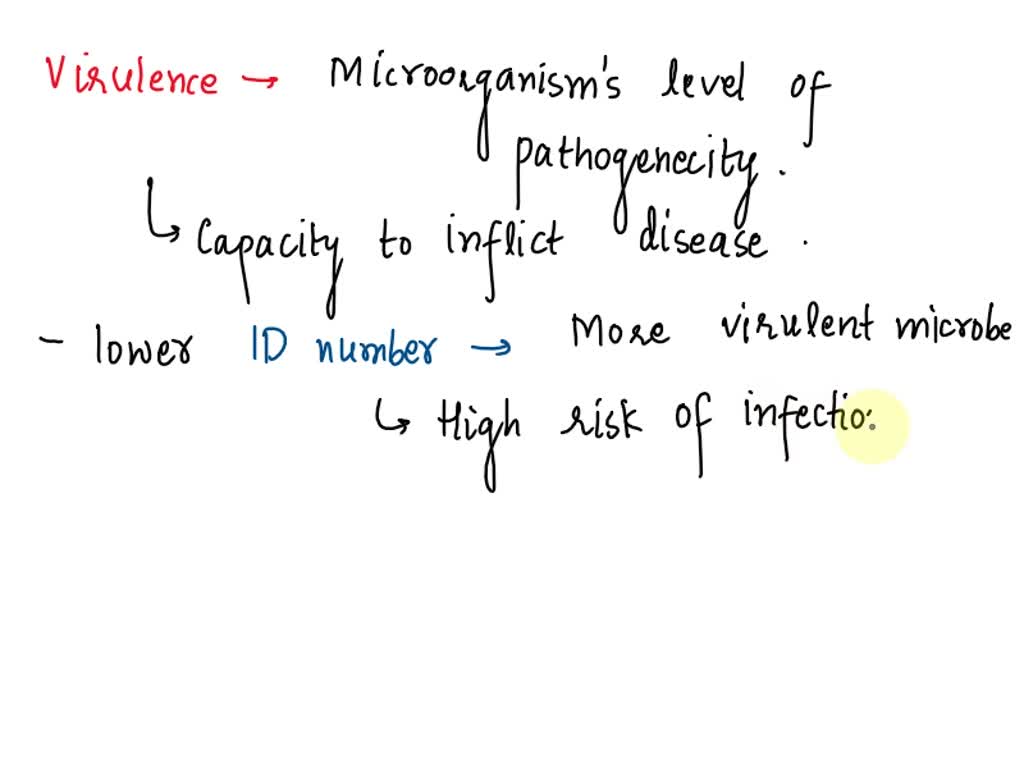 Virulence → Microorganism's level of
pathogenecity.
↳ Capacity to inflict disease.
- lower ID number → More virulent microbe
↳ High risk of infectio